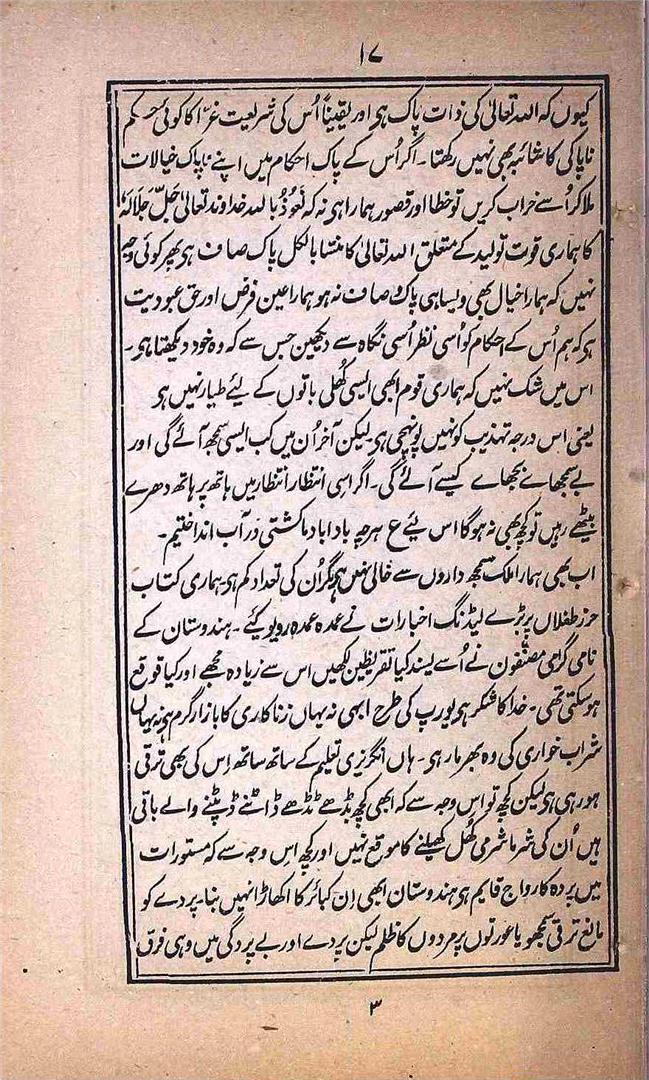 ۱۷
کیوں کہ اللہ تعالیٰ کی ذات پاک ہی اور یقیناً اُس کی شریعت غرّا کا کوئی حکم
ناپاکی کا شائبہ بھی نہیں رکھتا۔ اگر اُس کے پاک احکام میں اپنے ناپاک خیالات
ملا کر اُسے خراب کریں تو خطا اور قصور ہمارا ہی نہ کہ نَعُوذُ باللہ خداوند تعالیٰ جَلَّ جَلَالَہٗ
کا ہماری قوت تولید کے متعلق اللہ تعالیٰ کا منشا بالکل پاک صاف ہی پھر کوئی وجہ
نہیں کہ ہمارا خیال بھی ویسا ہی پاک و صاف نہ ہو ہمارا عین فرض اور حق عبودیت
ہی کہ ہم اُس کے احکام کو اُسی نظر اُسی نگاہ سے دیکھیں جس سے کہ وہ خود دیکھتا ہی۔
اس میں شک نہیں کہ ہماری قوم ابھی ایسی کُھلی باتوں کے لیئے طیار نہیں ہی
یعنی اس درجہ تہذیب کو نہیں پونہچی ہی لیکن آخر اُن میں کب ایسی سمجھ آئے گی اور
بے سمجھاے بجھاے کیسے آئے گی۔ اگر اسی انتظار انتظار میں ہاتھ پر ہاتھ دھرے
بیٹھے رہیں تو کچھ بھی نہ ہوگا اس لیئے ع ہرچہ بادا باد ماکشتی در آب انداختیم۔
اب بھی ہمارا ملک سمجھ داروں سے خالی نہیں ہی مگر اُن کی تعداد کم ہی ہماری کتاب
حرز طفلاں پر بڑے لیڈنگ اخبارات نے عمدہ عمدہ رویو کیئے۔ ہندوستان کے
نامی گرامی مصنّفوں نے اُسے پسند کیا تقریظیں لکھیں اس سے زیادہ مجھے اور کیا توقع
ہو سکتی تھی۔ خدا کا شکر ہی یورپ کی طرح ابھی نہ یہاں زناکاری کا بازار گرم ہی نہ یہاں
شراب خواری کی وہ بھرمار ہی۔ ہاں انگریزی تعلیم کے ساتھ ساتھ اِس کی بھی ترقی
ہو رہی ہی لیکن کچھ تو اس وجہ سے کہ ابھی کچھ بڈھے ٹڈھے ڈانٹنے ڈپٹنے والے باقی
ہیں اُن کی شرما شرمی کُھل کھیلنے کا موقع نہیں اور کچھ اِس وجہ سے کہ مستورات
میں پردہ کا رواج قایم ہی ہندوستان ابھی اِن کبائر کا اکھاڑا نہیں بنا۔ پردے کو
مانع ترقی سمجھو یا عورتوں پر مردوں کا ظلم لیکن پردے اور بے پردگی میں وہی فرق
۳